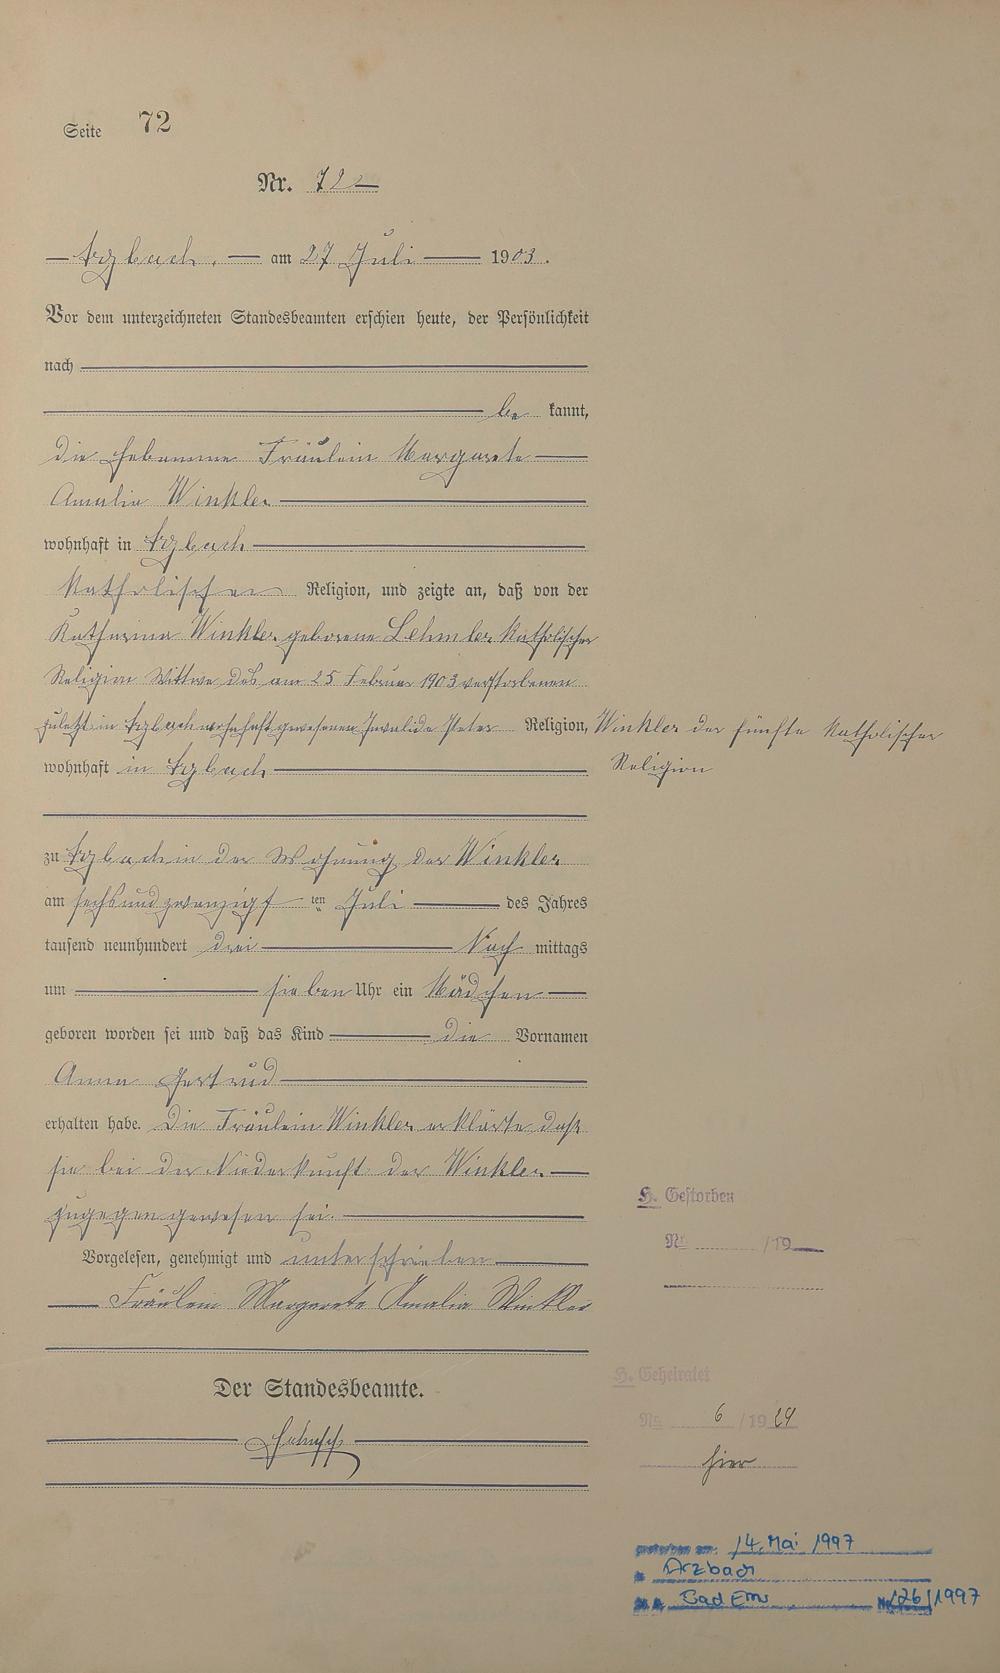 Seite 72
Nr. 72
Arzbach, am 27 Juli 1903.
Vor dem unterzeichneten Standesbeamten erschien heute, der Persönlichkeit
nach
be kannt,
die Hebamme Fräulein Margarete
Amalia Winkler
wohnhaft in Arzbach
katholischer Religion, und zeigte an, daß von der
Katharina Winkler geborene Lehmler katholischer
Religion Wittwe des am 25 Februar 1903 verstorbenen
zuletzt in Arzbach wohnhaft gewesenen Invalide Peter Religion, Winkler der fünfte katholischer
Religion
wohnhaft in Arzbach
zu Arzbach in der Wohnung der Winkler
am sechsundzwanzigsten Juli des Jahres
tausend neunhundert drei Nach mittags
um sieben Uhr ein Mädchen
geboren worden sei und daß das Kind die Vornamen
Anna Gertrud
erhalten habe. Die Fräulein Winkler erklärte daß
sie bei der Niederkunft der Winkler
zugegen gewesen sei.
Vorgelesen, genehmigt und unterschrieben
Fräulein Margarete Amalia Winkler
Der Standesbeamte.
H. Gestorben
Nr. /19
H. Geheiratet
Nr. 6 /1924
hier
gestorben am: 14. Mai 1997
Arzbach
Bad Ems Nr. 126/1997